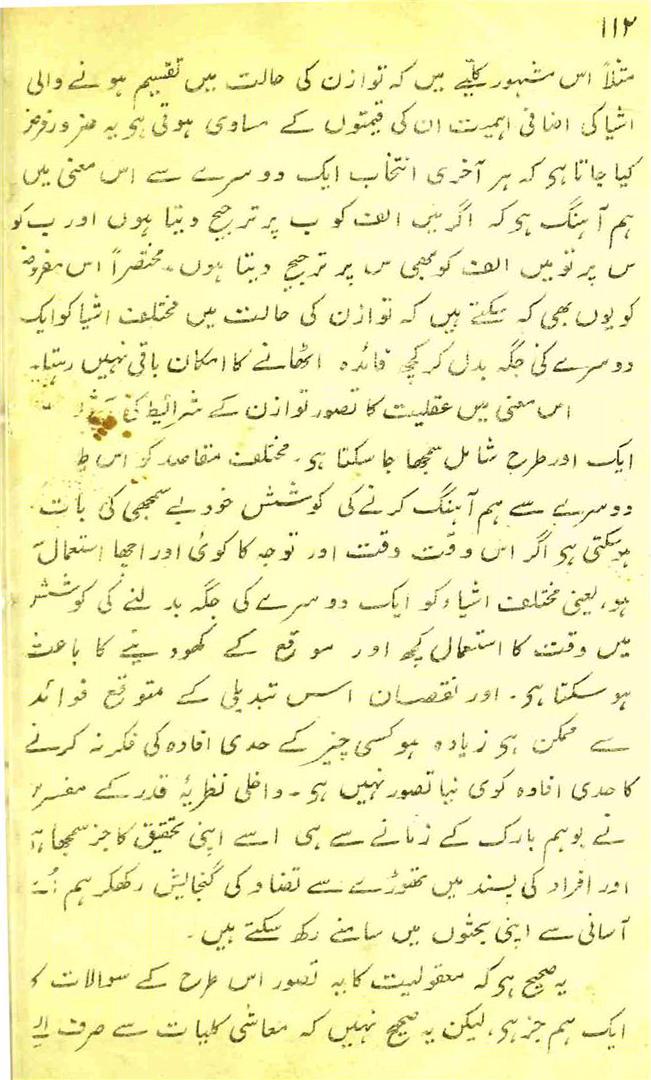 ۱۱۲
مثلاً اس مشہور کلیّے میں کہ توازن کی حالت میں تقسیم ہونے والی
اشیا کی اضافی اہمیت ان کی قیمتوں کے مساوی ہوتی ہو یہ ضرور فرض
کیا جاتا ہو کہ ہر آخری انتخاب ایک دوسرے سے اس معنی میں
ہم آہنگ ہو کہ اگر میں الف کو ب پر ترجیح دیتا ہوں اور ب کو
س پر تو میں الف کو بھی س پر ترجیح دیتا ہوں۔ مختصراً اس مفروضہ
کو یوں بھی کہ سکتے ہیں کہ توازن کی حالت میں مختلف اشیا کو ایک
دوسرے کی جگہ بدل کر کچھ فائدہ اٹھانے کا امکان باقی نہیں رہتا۔
اس معنی میں عقلیت کا تصور توازن کے شرائط کی
ایک اور طرح شامل سمجھا جا سکتا ہو۔ مختلف مقاصد کو اس
دوسرے سے ہم آہنگ کرنے کی کوشش خود بے سمجھی کی بات
ہو سکتی ہو اگر اس وقت وقت اور توجہ کا کوئی اور اچھا استعمال
ہو، یعنی مختلف اشیاء کو ایک دوسرے کی جگہ بدلنے کی کوشش
میں وقت کا استعمال کچھ اور موقع کے کھو دینے کا باعث
ہو سکتا ہو۔ اور نقصان اس تبدیلی کے متوقع فوائد
سے ممکن ہو زیادہ ہو کسی چیز کے حدی افادہ کی فکر نہ کرنے
کا حدی افادہ کوی نیا تصور نہیں ہو۔ داخلی نظریۂ قدر کے
نے بوہم بارک کے زمانے سے ہی اسے اپنی تحقیق کا جز سمجھا
اور افراد کی پسند میں تھوڑے سے تضاد کی گنجایش رکھکر ہم
آسانی سے اپنی بحثوں میں سامنے رکھ سکتے ہیں۔
یہ صحیح ہو کہ معقولیت کا یہ تصور اس طرح کے سوالات
ایک ہم جز ہو، لیکن یہ صحیح نہیں کہ معاشی کلیات سے صرف